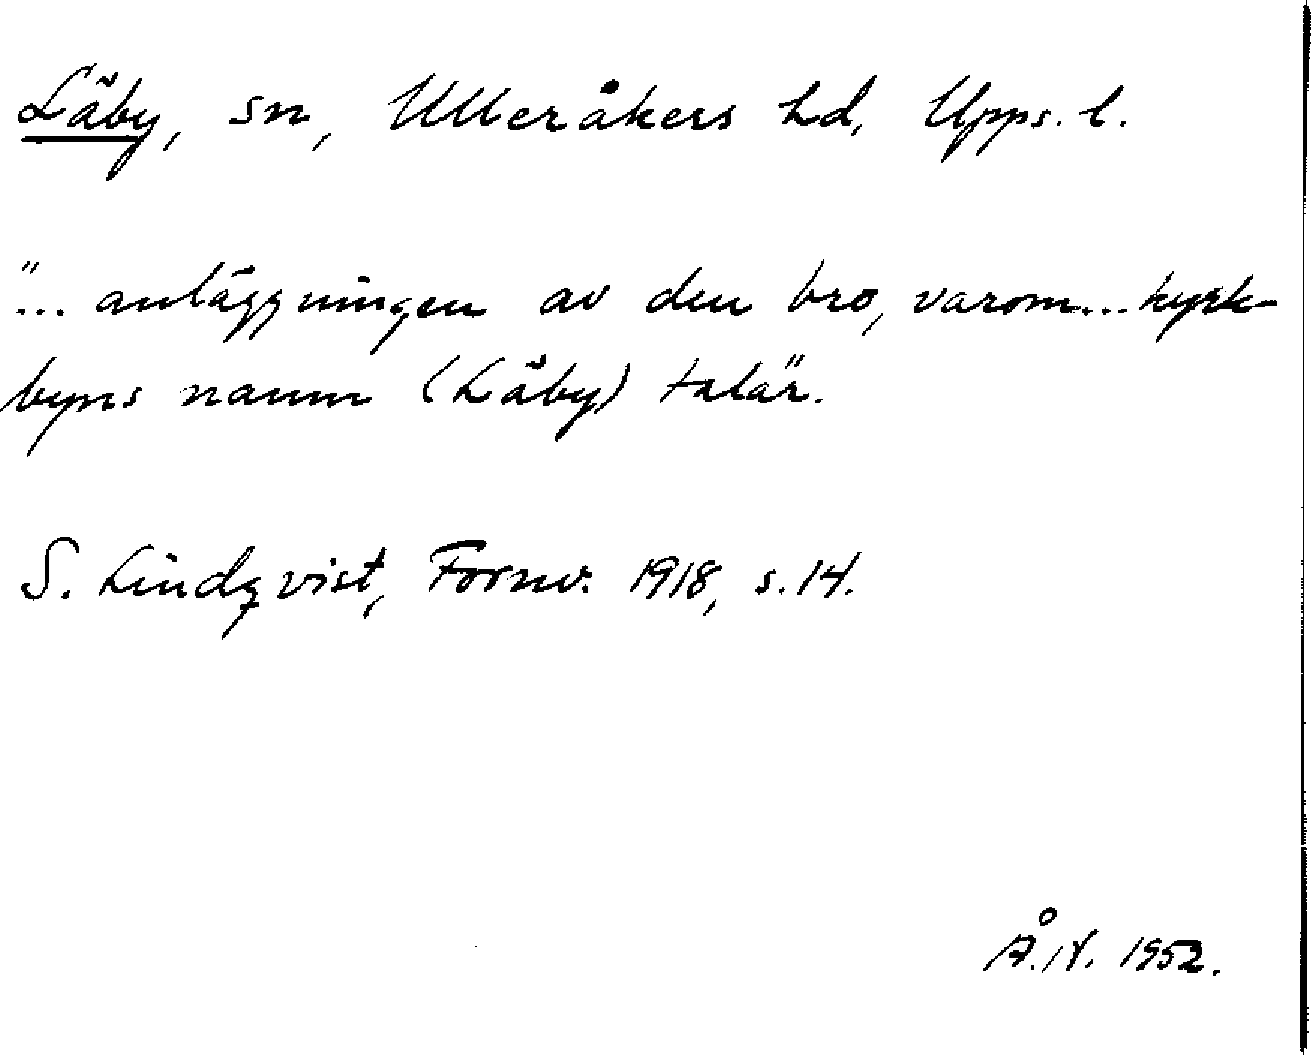 Läby, sn, Ulleråkers hd, Upps. l.
"... anläggningen av den bro, varom... kyrk-
byns namn (Läby) talar".
S. Lindqvist, Fornv. 1918, s. 14.
Å. N. 1952.